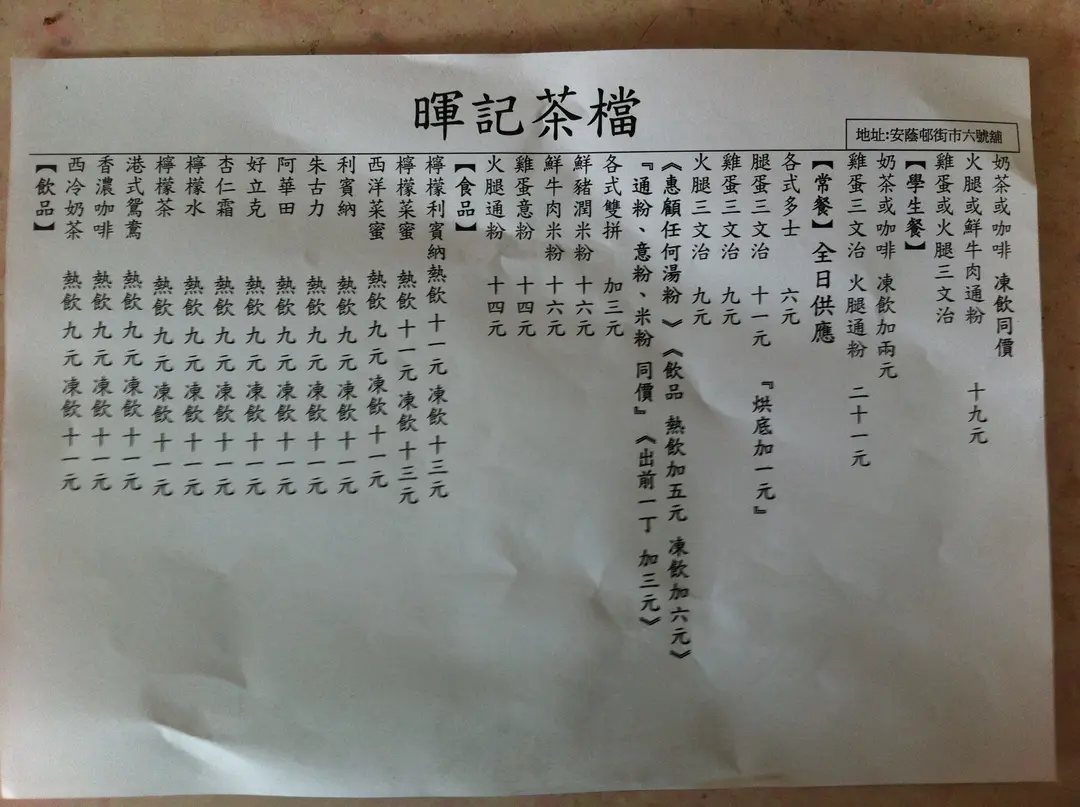 暉記茶檔
地址:安蔭邨街市六號舖
【飲品】
西冷奶茶 熱飲 九元 凍飲 十一元
香濃咖啡 熱飲 九元 凍飲 十一元
港式鴛鴦 熱飲 九元 凍飲 十一元
檸檬茶 熱飲 九元 凍飲 十一元
檸檬水 熱飲 九元 凍飲 十一元
杏仁霜 熱飲 九元 凍飲 十一元
好立克 熱飲 九元 凍飲 十一元
阿華田 熱飲 九元 凍飲 十一元
朱古力 熱飲 九元 凍飲 十一元
利賓納 熱飲 九元 凍飲 十一元
西洋菜蜜 熱飲 九元 凍飲 十一元
檸檬菜蜜 熱飲 十一元 凍飲 十三元
檸檬利賓納 熱飲 十一元 凍飲 十三元
【食品】
火腿通粉 十四元
雞蛋意粉 十四元
鮮牛肉米粉 十六元
鮮豬潤米粉 十六元
各式雙拼 加三元
『通粉、意粉、米粉 同價』《出前一丁 加三元》
《惠顧任何湯粉》《飲品 熱飲加五元 凍飲加六元》
火腿三文治 九元
雞蛋三文治 九元
腿蛋三文治 十一元 『烘底加一元』
各式多士 六元
【常餐】全日供應
雞蛋三文治 火腿通粉 二十一元
奶茶或咖啡 凍飲加兩元
【學生餐】
雞蛋或火腿三文治
火腿或鮮牛肉通粉 十九元
奶茶或咖啡 凍飲同價